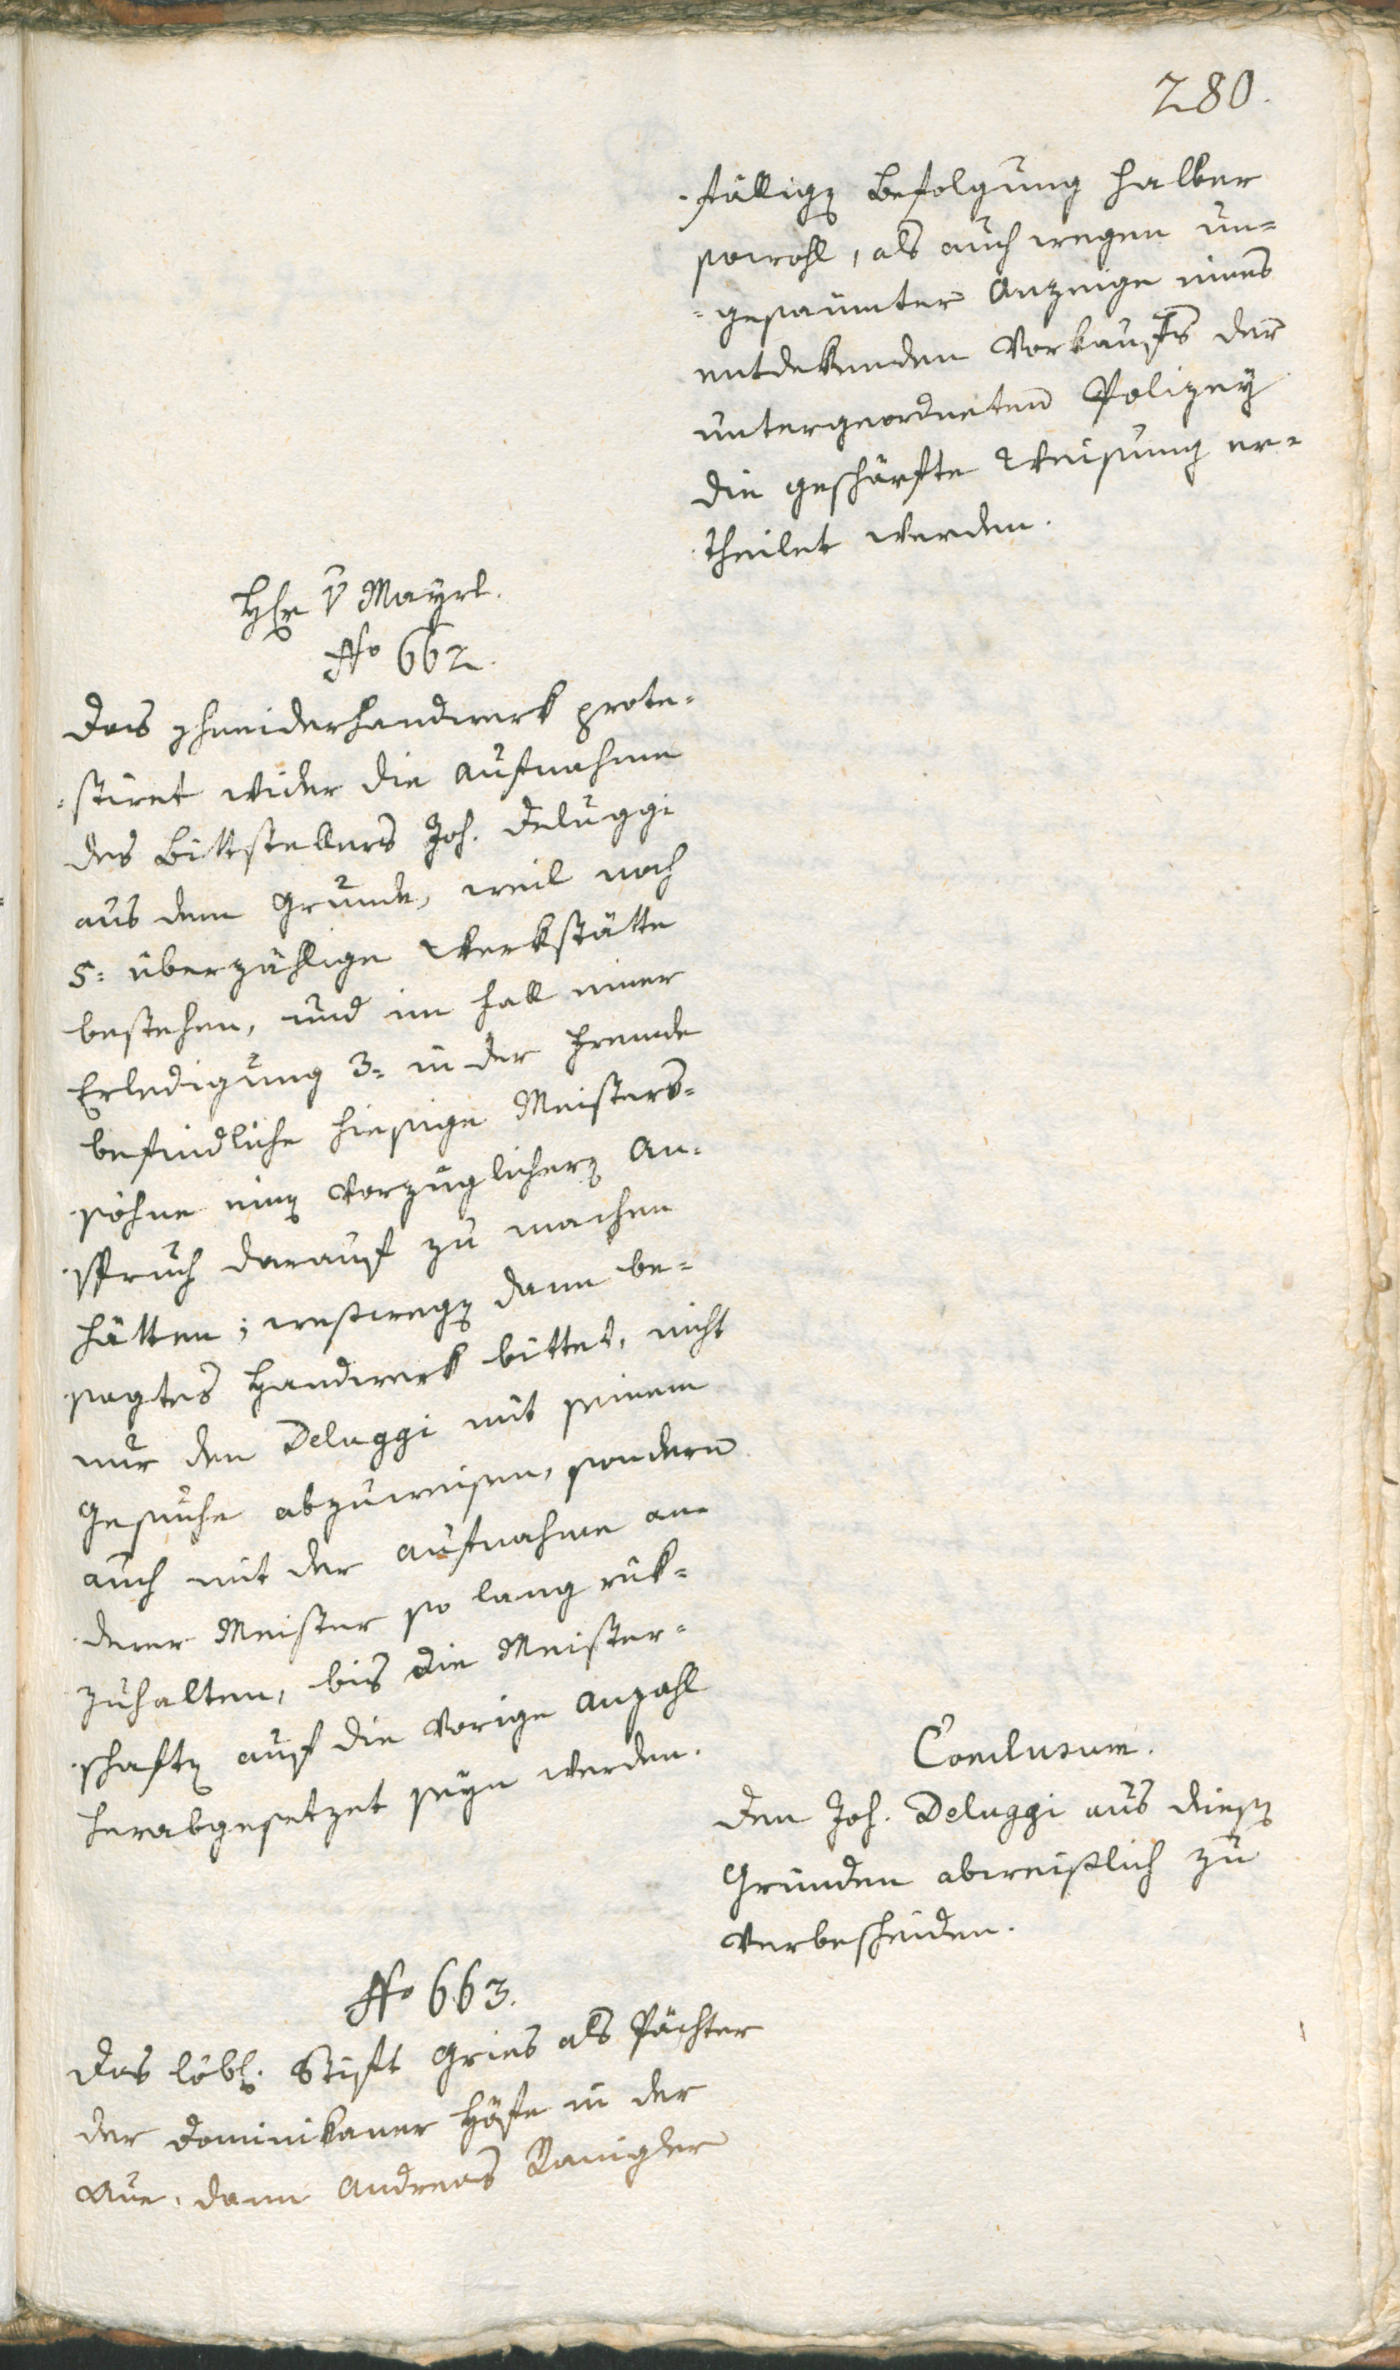 280.
fällig Befolgung halber
sowohl, als auch wegen un-
gesaumter Anzeige eines
entdekenden Vorkaufs der
untergeordneten Polizey
die geschärfte Weisung er-
theilet werden.
Hr v Mayrl.
No 662.
Das Schneiderhandwerk prote-
stiret wider die Aufnahme
des Bittstellers Joh. Deluggi
aus dem Grunde, weil noch
5: überzählige Werkstätte
bestehen, und im Fall einer
Erledigung 3: in der Fremde
befindliche hiesige Meisters-
söhne einen vorzüglichern An-
spruch darauf zu machen
hätten; weßwegen dann be-
sagtes Handwerk bittet, nicht
nur den Deluggi mit seinem
Gesuche abzuweisen, sondern
auch mit der Aufnahme an-
derer Meister so lang rük-
zuhalten, bis die Meister-
schaften auf die vorige Anzahl
herabgesetzet seyn werden.
Conclusum.
Den Joh. Deluggi aus diesen
Gründen abweißlich zu
verbescheiden.
No 663.
Das löbl. Stift Gries als Pächter
der Dominikaner Höfe in der
Aue, dann Andreas Ranigler